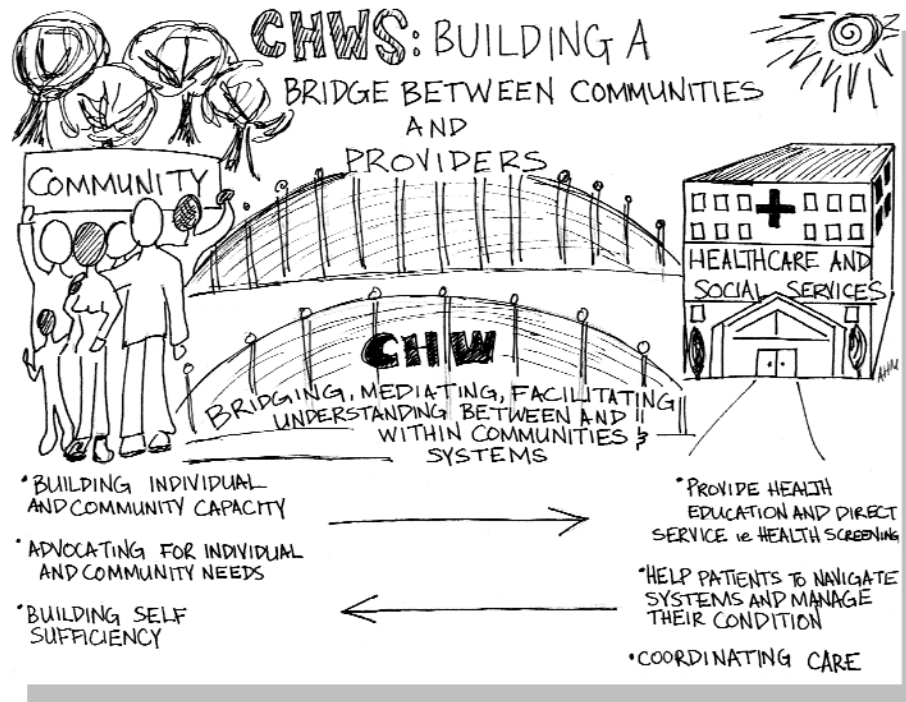 CHWS: BUILDING A
BRIDGE BETWEEN COMMUNITIES
AND
PROVIDERS
COMMUNITY
HEALTHCARE AND
SOCIAL SERVICES
AHM
CHW
BRIDGING, MEDIATING, FACILITATING
UNDERSTANDING BETWEEN AND
WITHIN COMMUNITIES &
SYSTEMS
• BUILDING INDIVIDUAL
AND COMMUNITY CAPACITY
• ADVOCATING FOR INDIVIDUAL
AND COMMUNITY NEEDS
• BUILDING SELF
SUFFICIENCY
• PROVIDE HEALTH
EDUCATION AND DIRECT
SERVICE ie HEALTH SCREENING
• HELP PATIENTS to NAVIGATE
SYSTEMS AND MANAGE
THEIR CONDITION
• COORDINATING CARE